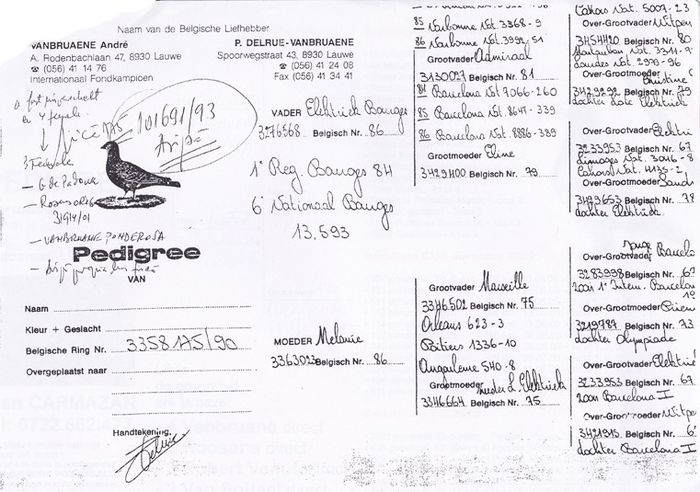 Naam van de Belgische Liefhebber
VANBRUAENE André
A. Rodenbachlaan 47, 8930 Lauwe
☎ (056) 41 14 76
Internationaal Fondkampioen
P. DELRUE-VANBRUAENE
Spoorwegstraat 43, 8930 Lauwe
☎ (056) 41 24 08
Fax (056) 41 34 41
101691/93
G. de Padova
31914/01
VANBRUANE PONDEROSA
Pedigree
VAN
Naam
Kleur + Geslacht
Belgische Ring Nr. 3358175/90
Overgeplaatst naar
Handtekening,
Delrue
VADER Elektriek Bourges
3276568 Belgisch Nr. 86
1e Reg. Bourges 84
6e Nationaal Bourges
13.593
MOEDER Melanie
3363023 Belgisch Nr. 86
85 Narbonne Nat. 3368-9
86 Narbonne Nat. 3992-51
Grootvader Admiraal
3130027 Belgisch Nr. 81
84 Barcelona Nat. 7066-260
85 Barcelona Nat. 8647-339
86 Barcelona Nat. 8886-389
Grootmoeder Eline
3429400 Belgisch Nr. 79
Grootvader Marseille
3346502 Belgisch Nr. 75
Orleans 623-3
Poitiers 1336-10
Angouleme 540-8
Grootmoeder moeder L. Elektriek
3346664 Belgisch Nr. 75
Cahors Nat. 5007-23
Over-Grootvader Witpen
3454420 Belgisch Nr. 80
Montauban Nat. 3341-9
Landes Nat. 2976-96
Over-Grootmoeder Christine
3429292 Belgisch Nr. 79
dochter Elektriek
Over-Grootvader Elektri
3233953 Belgisch Nr. 67
Limoges Nat. 3046-8
Cahors Nat. 4135-2
Over-Grootmoeder
3423653 Belgisch Nr. 78
dochter Elektriek
Jonge
Over-Grootvader Barcelo
3283998 Belgisch Nr. 6
zoon 1e Intern. Barcelon
Over-Grootmoeder
3219787 Belgisch Nr. 73
dochter Olympiade
Over-Grootvader Elektrie
3233953 Belgisch Nr. 67
zoon Barcelona I
Over-Grootmoeder Witpe
3421915 Belgisch Nr. 6
dochter Barcelona I